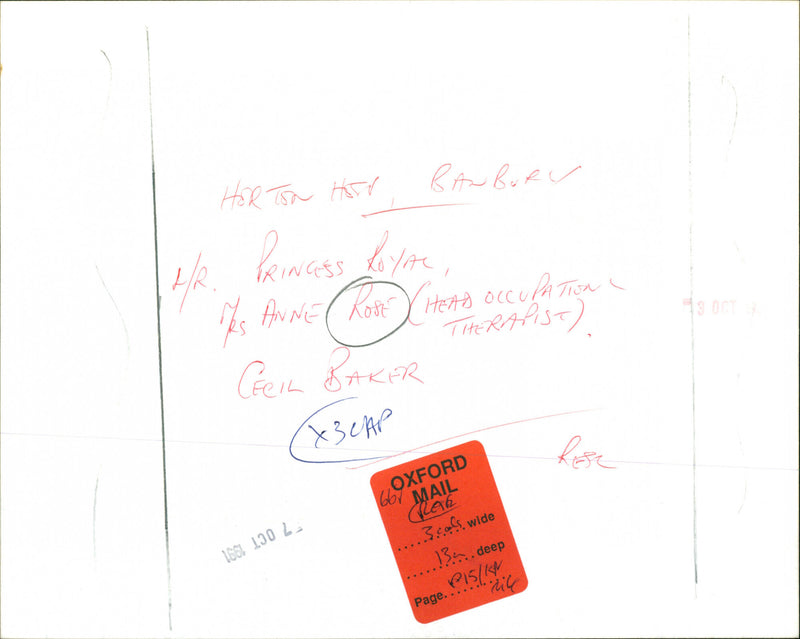 HORTON HOSP, BANBURY
L/R. PRINCESS ROYAL,
MRS ANNE ROSE (HEAD OCCUPATIONAL
THERAPIST).
CECIL BAKER
X3CAP
ROSE
3 OCT
7 OCT 1991
OXFORD
MAIL
661
ROSE
3 cols wide
13 deep
Page P15/